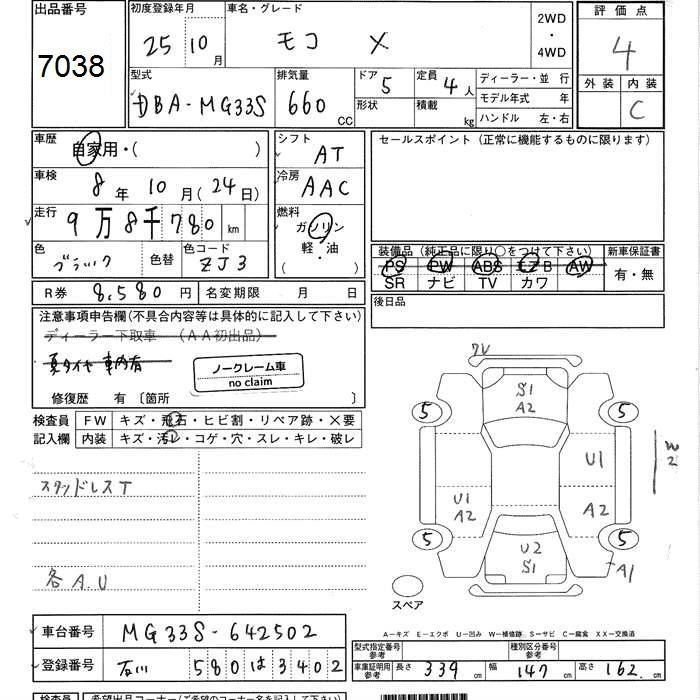 出品番号
7038
初度登録年月
25 10月
車名・グレード
モコ X
2WD
・
4WD
評価点
4
外装 内装
C
型式
DBA-MG33S
排気量
660 CC
ドア 5
形状
定員 4人
積載 kg
ディーラー・並 行
モデル年式 年
ハンドル 左・右
車歴
自家用・( )
車検
8年 10月(24日)
走行
9万8千780 km
色
ブラック
色替
色コード
ZJ3
シフト
AT
冷房
AAC
燃料
ガソリン
軽・油
( )
セールスポイント(正常に機能するものに限ります)
装備品(純正品に限り○をつけて下さい)
PS PW ABS エアB AW
SR ナビ TV カワ
新車保証書
有・無
後日品
R券 8,580円 名変期限 月 日
注意事項申告欄(不具合内容等は具体的に記入して下さい)
ディーラー下取車 (AA初出品)
夏タイヤ 車内有
ノークレーム車
no claim
修復歴 有 〔箇所 〕
検査員
記入欄
FW キズ・飛石・ヒビ割・リペア跡・X要
内装 キズ・汚レ・コゲ・穴・スレ・キレ・破レ
スタッドレスT
各A.U
7V
S1
A2
5
5
U1
U1
A2
A2
5
5
U2
S1
A1
スペア
A-キズ E-エクボ U-凹み W-補修跡 S-サビ C-腐食 XX-交換済
車台番号 MG33S-642502
登録番号 石川 580 は 3402
型式指定番号
参考
種別区分番号
参考
車庫証明用
参考
長さ 339 cm 幅 147 cm 高さ 162 cm
検査員 希望出品コーナー(ご希望のコーナー